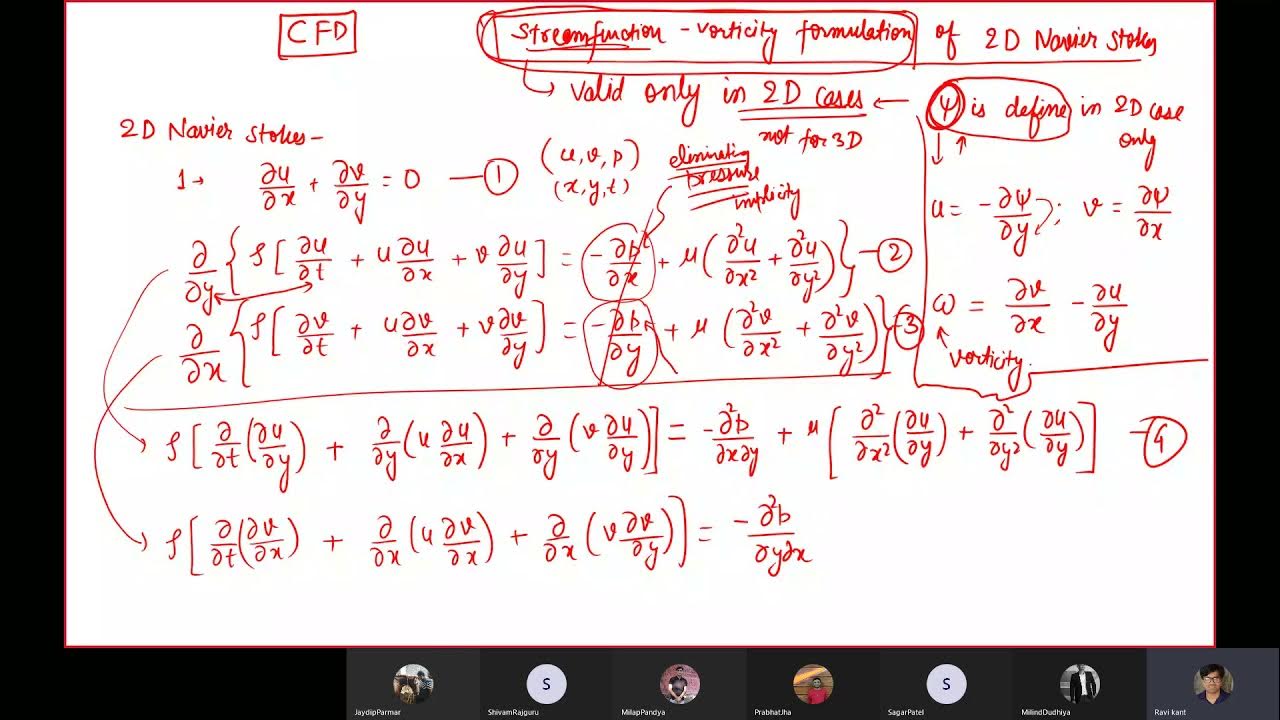 CFD
Streamfunction - vorticity formulation of 2D Navier Stokes
↳ valid only in 2D cases ← ψ is define in 2D case only
not for 3D
2D Navier Stokes -
1→ ∂u/∂x + ∂v/∂y = 0 — ①
(u, v, p)
(x, y, t)
eliminating
pressure
implicity
u = -∂ψ/∂y ; v = ∂ψ/∂x
∂/∂y { ρ[ ∂u/∂t + u ∂u/∂x + v ∂u/∂y ] = -∂p/∂x + μ( ∂²u/∂x² + ∂²u/∂y² ) } — ②
∂/∂x { ρ[ ∂v/∂t + u ∂v/∂x + v ∂v/∂y ] = -∂p/∂y + μ( ∂²v/∂x² + ∂²v/∂y² ) } — ③
ω = ∂v/∂x - ∂u/∂y
vorticity
ρ[ ∂/∂t (∂u/∂y) + ∂/∂y (u ∂u/∂x) + ∂/∂y (v ∂u/∂y) ] = -∂²p/∂x∂y + μ[ ∂²/∂x² (∂u/∂y) + ∂²/∂y² (∂u/∂y) ] — ④
ρ[ ∂/∂t (∂v/∂x) + ∂/∂x (u ∂v/∂x) + ∂/∂x (v ∂v/∂y) ] = -∂²p/∂y∂x
S S
JaydipParmar ShivamRajguru MilapPandya PrabhatJha SagarPatel MilindDudhiya Ravi kant